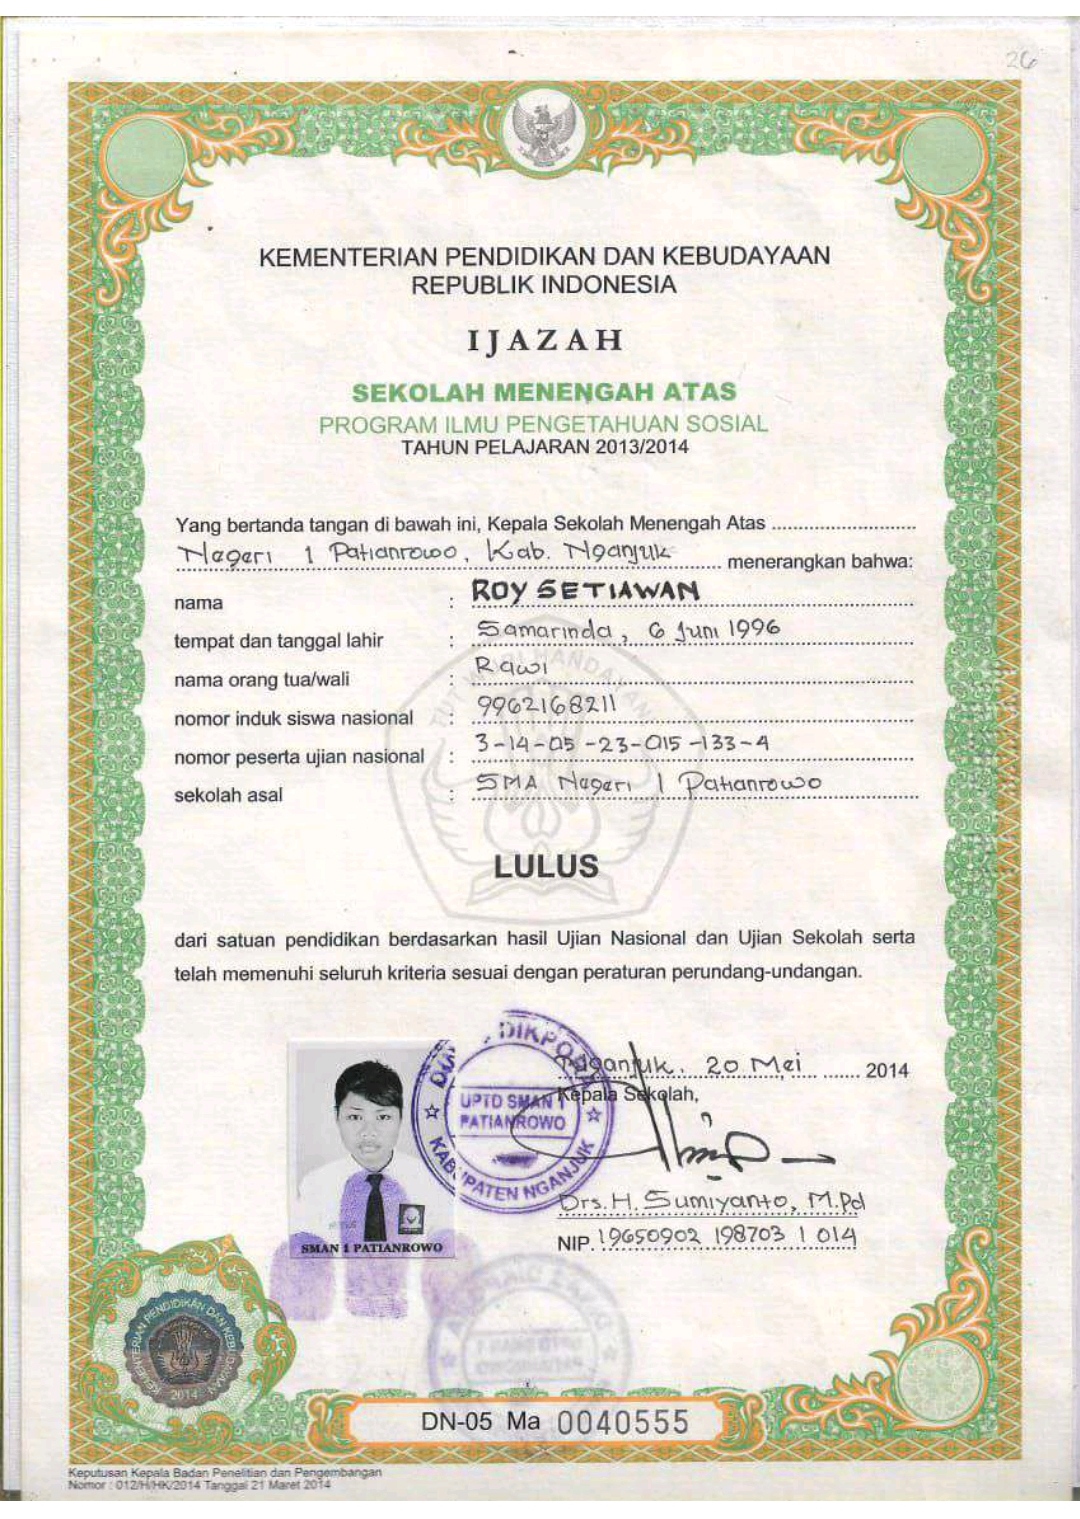 26
KEMENTERIAN PENDIDIKAN DAN KEBUDAYAAN
REPUBLIK INDONESIA
IJAZAH
SEKOLAH MENENGAH ATAS
PROGRAM ILMU PENGETAHUAN SOSIAL
TAHUN PELAJARAN 2013/2014
Yang bertanda tangan di bawah ini, Kepala Sekolah Menengah Atas
Negeri 1 Patianrowo, Kab. Nganjuk menerangkan bahwa:
nama : ROY SETIAWAN
tempat dan tanggal lahir : Samarinda, 6 Juni 1996
nama orang tua/wali : Rawi
nomor induk siswa nasional : 9962168211
nomor peserta ujian nasional : 3-14-05-23-015-133-4
sekolah asal : SMA Negeri 1 Patianrowo
TUT WURI HANDAYANI
LULUS
dari satuan pendidikan berdasarkan hasil Ujian Nasional dan Ujian Sekolah serta
telah memenuhi seluruh kriteria sesuai dengan peraturan perundang-undangan.
Nganjuk, 20 Mei 2014
Kepala Sekolah,
DIKPORA
UPTD SMAN 1
PATIANROWO
KABUPATEN NGANJUK
Drs. H. Sumiyanto, M.Pd
NIP. 19650902 198703 1 014
SMAN 1 PATIANROWO
KEMENTERIAN PENDIDIKAN DAN KEBUDAYAAN
2014
DN-05 Ma 0040555
Keputusan Kepala Badan Penelitian dan Pengembangan
Nomor : 012/H/HK/2014 Tanggal 21 Maret 2014